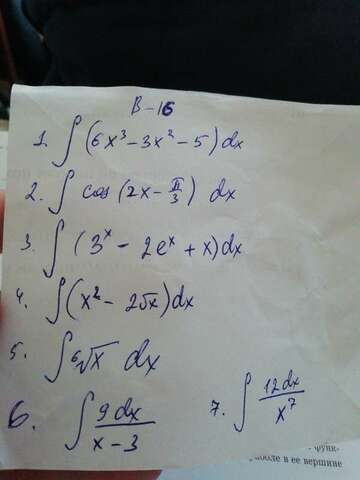 В-16
1. ∫(6x³-3x²-5)dx
2. ∫ cos(2x-π/3) dx
3. ∫(3ˣ-2eˣ+x)dx
4. ∫(x²-2√x)dx
5. ∫⁶√x dx
6. ∫ 9dx/(x-3)
7. ∫ 12dx/x⁷
функ-
в ее вершине